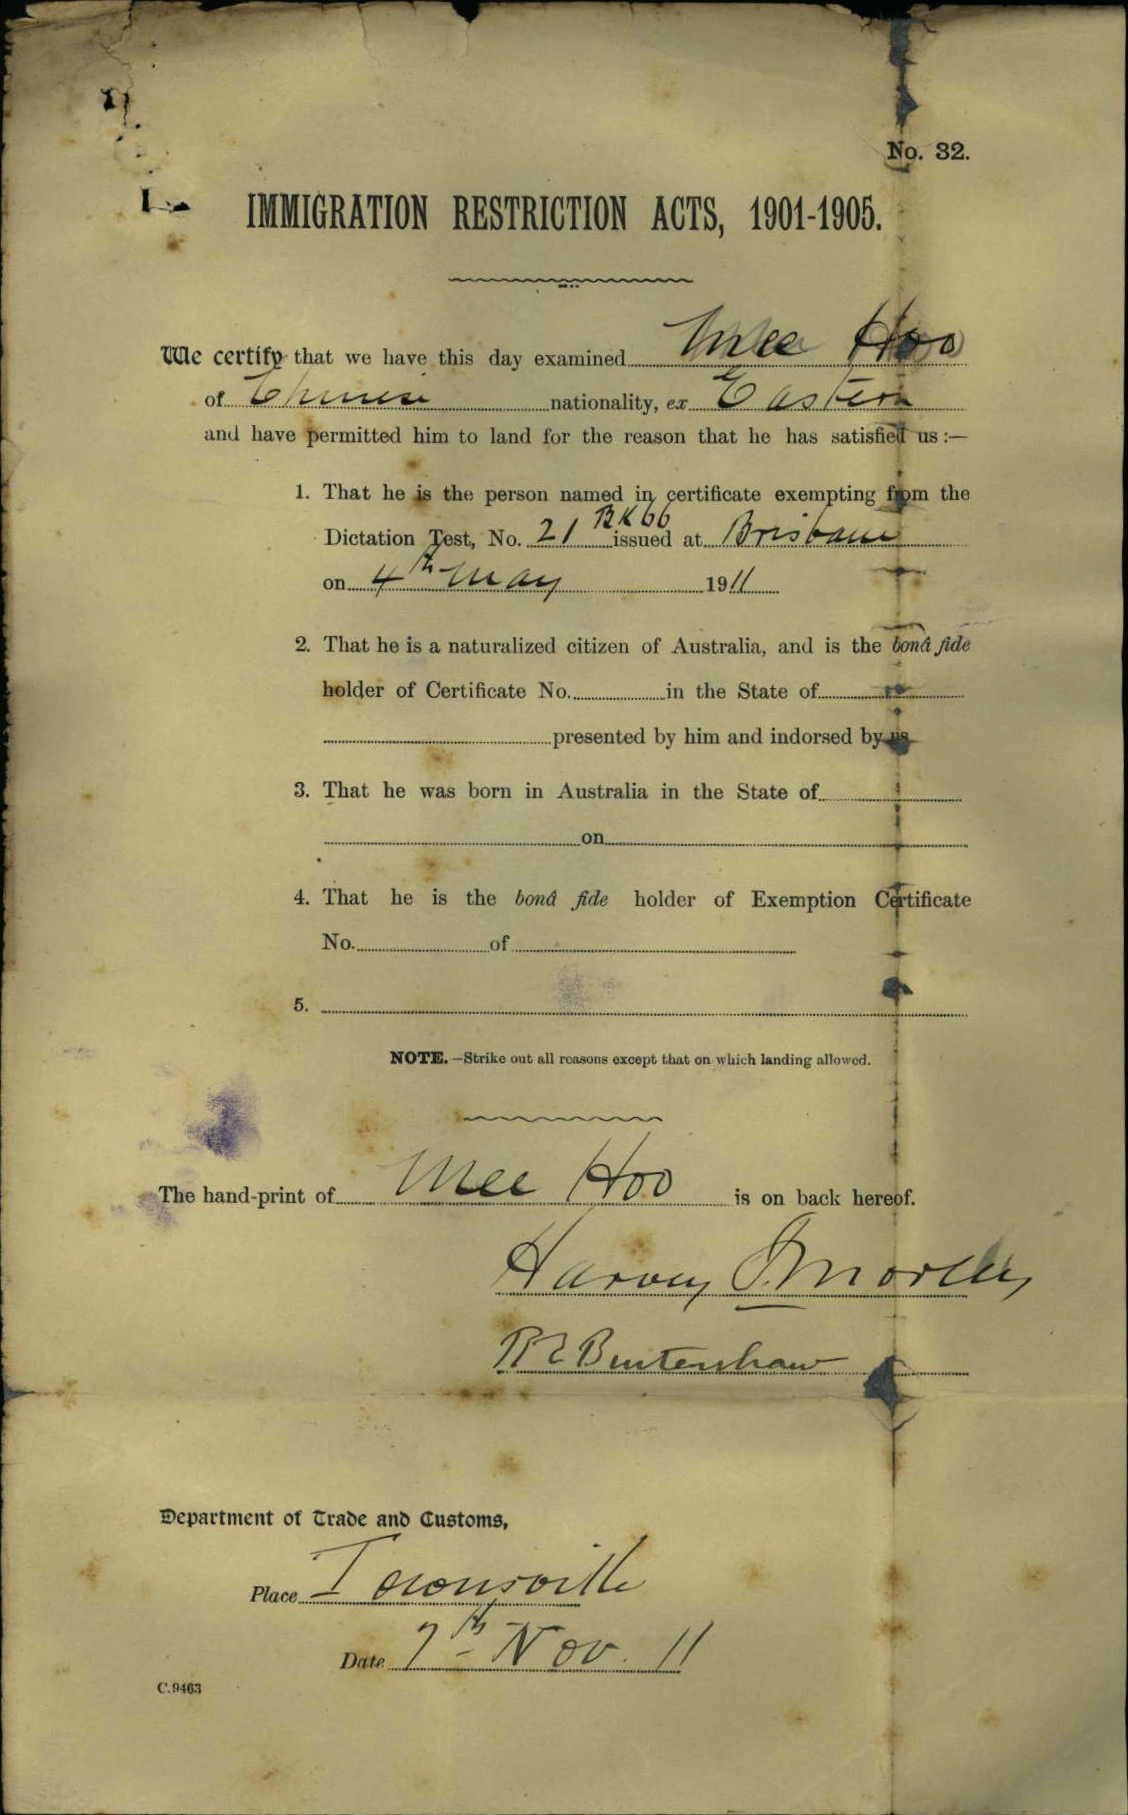 No. 32.
IMMIGRATION RESTRICTION ACTS, 1901-1905.
We certify that we have this day examined Mee Hoo
of Chinese nationality, ex Eastern
and have permitted him to land for the reason that he has satisfied us :—
1. That he is the person named in certificate exempting from the
Dictation Test, No. 21 BK 66 issued at Brisbane
on 4th May 1911
2. That he is a naturalized citizen of Australia, and is the bonâ fide
holder of Certificate No. in the State of
presented by him and indorsed by us
3. That he was born in Australia in the State of
on
4. That he is the bonâ fide holder of Exemption Certificate
No. of
5.
NOTE.—Strike out all reasons except that on which landing allowed.
The hand-print of Mee Hoo is on back hereof.
Harvey J. Morley
R E Buntenshaw
Department of Trade and Customs,
Place Townsville
Date 7th Nov. 11
C.9463